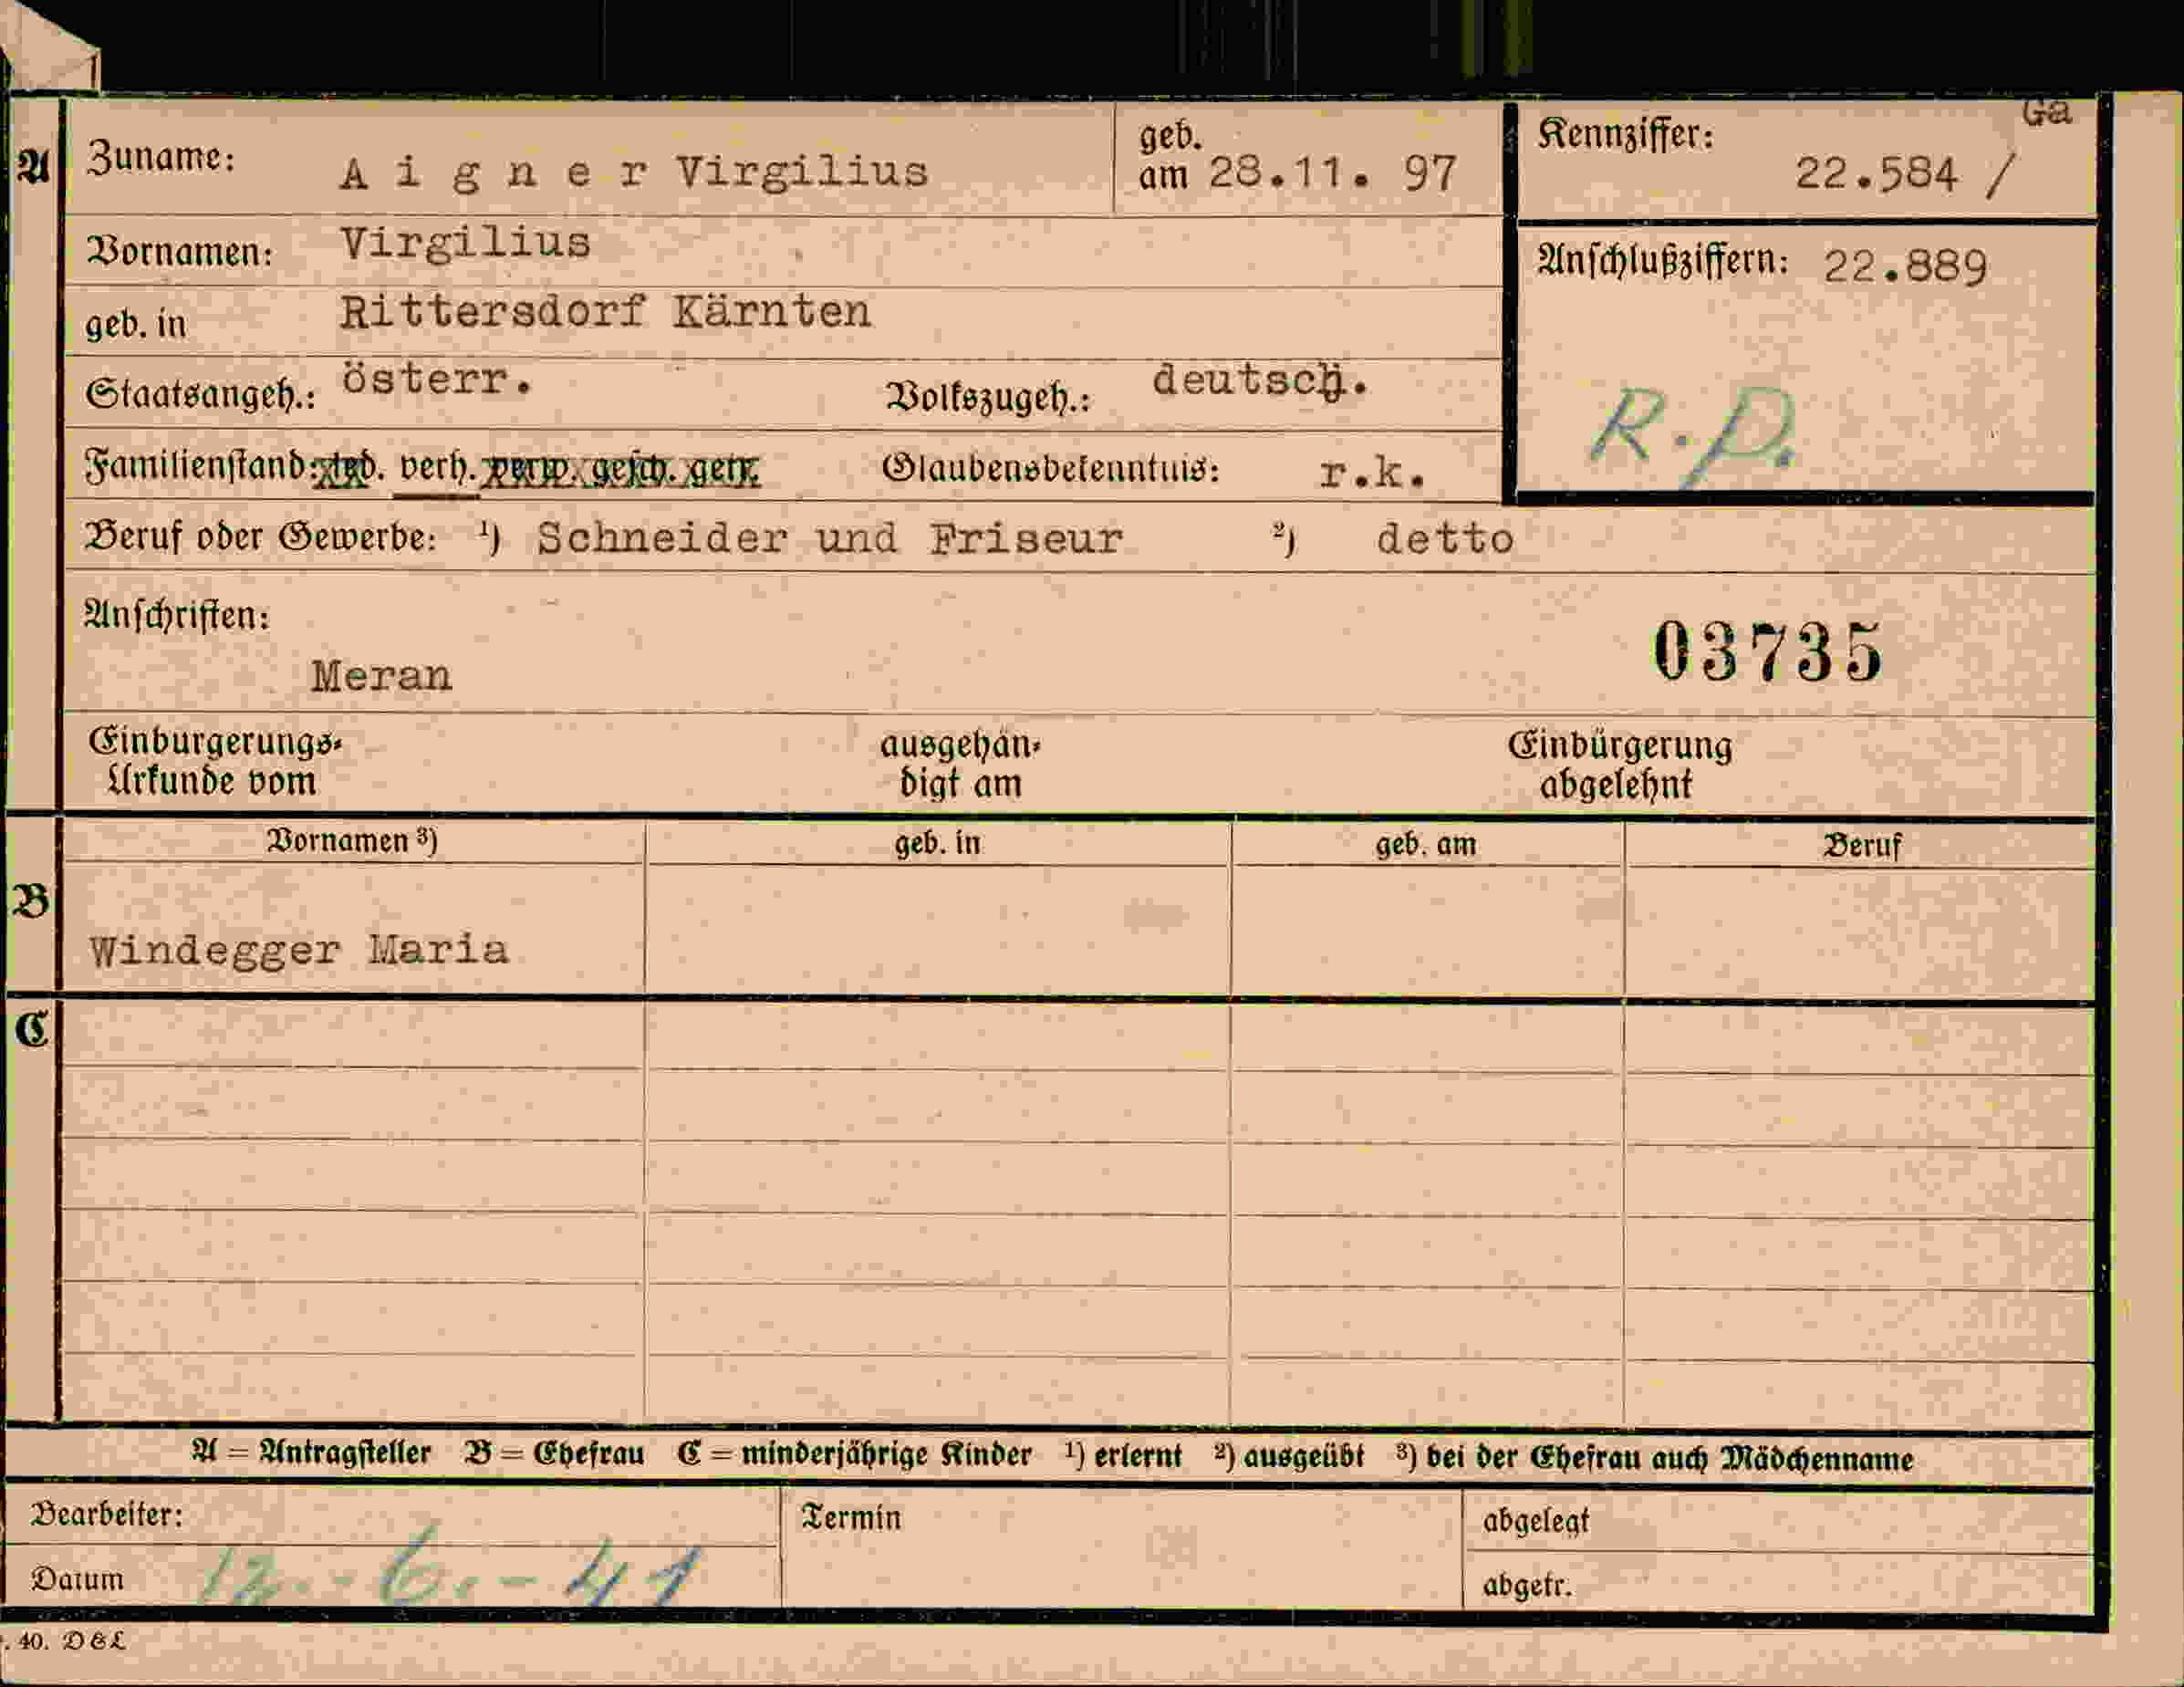 Ga
A Zuname: Aigner Virgilius geb. am 28.11. 97 Kennziffer: 22.584 /
Vornamen: Virgilius Anschlußziffern: 22.889
geb. in Rittersdorf Kärnten
Staatsangeh.: österr. Volkszugeh.: deutsch. R.P.
Familienstand: led. verh. verw. gesch. getr. Glaubensbekenntnis: r.k.
Beruf oder Gewerbe: ¹) Schneider und Friseur ²) detto
Anschriften: 03735
Meran
Einburgerungs- ausgehän- Einbürgerung
Urkunde vom digt am abgelehnt
Vornamen ³) geb. in geb. am Beruf
B
Windegger Maria
C
A = Antragsteller B = Ehefrau C = minderjährige Kinder ¹) erlernt ²) ausgeübt ³) bei der Ehefrau auch Mädchenname
Bearbeiter: Termin abgelegt
Datum 12.-6.-41 abgetr.
. 40. D&L